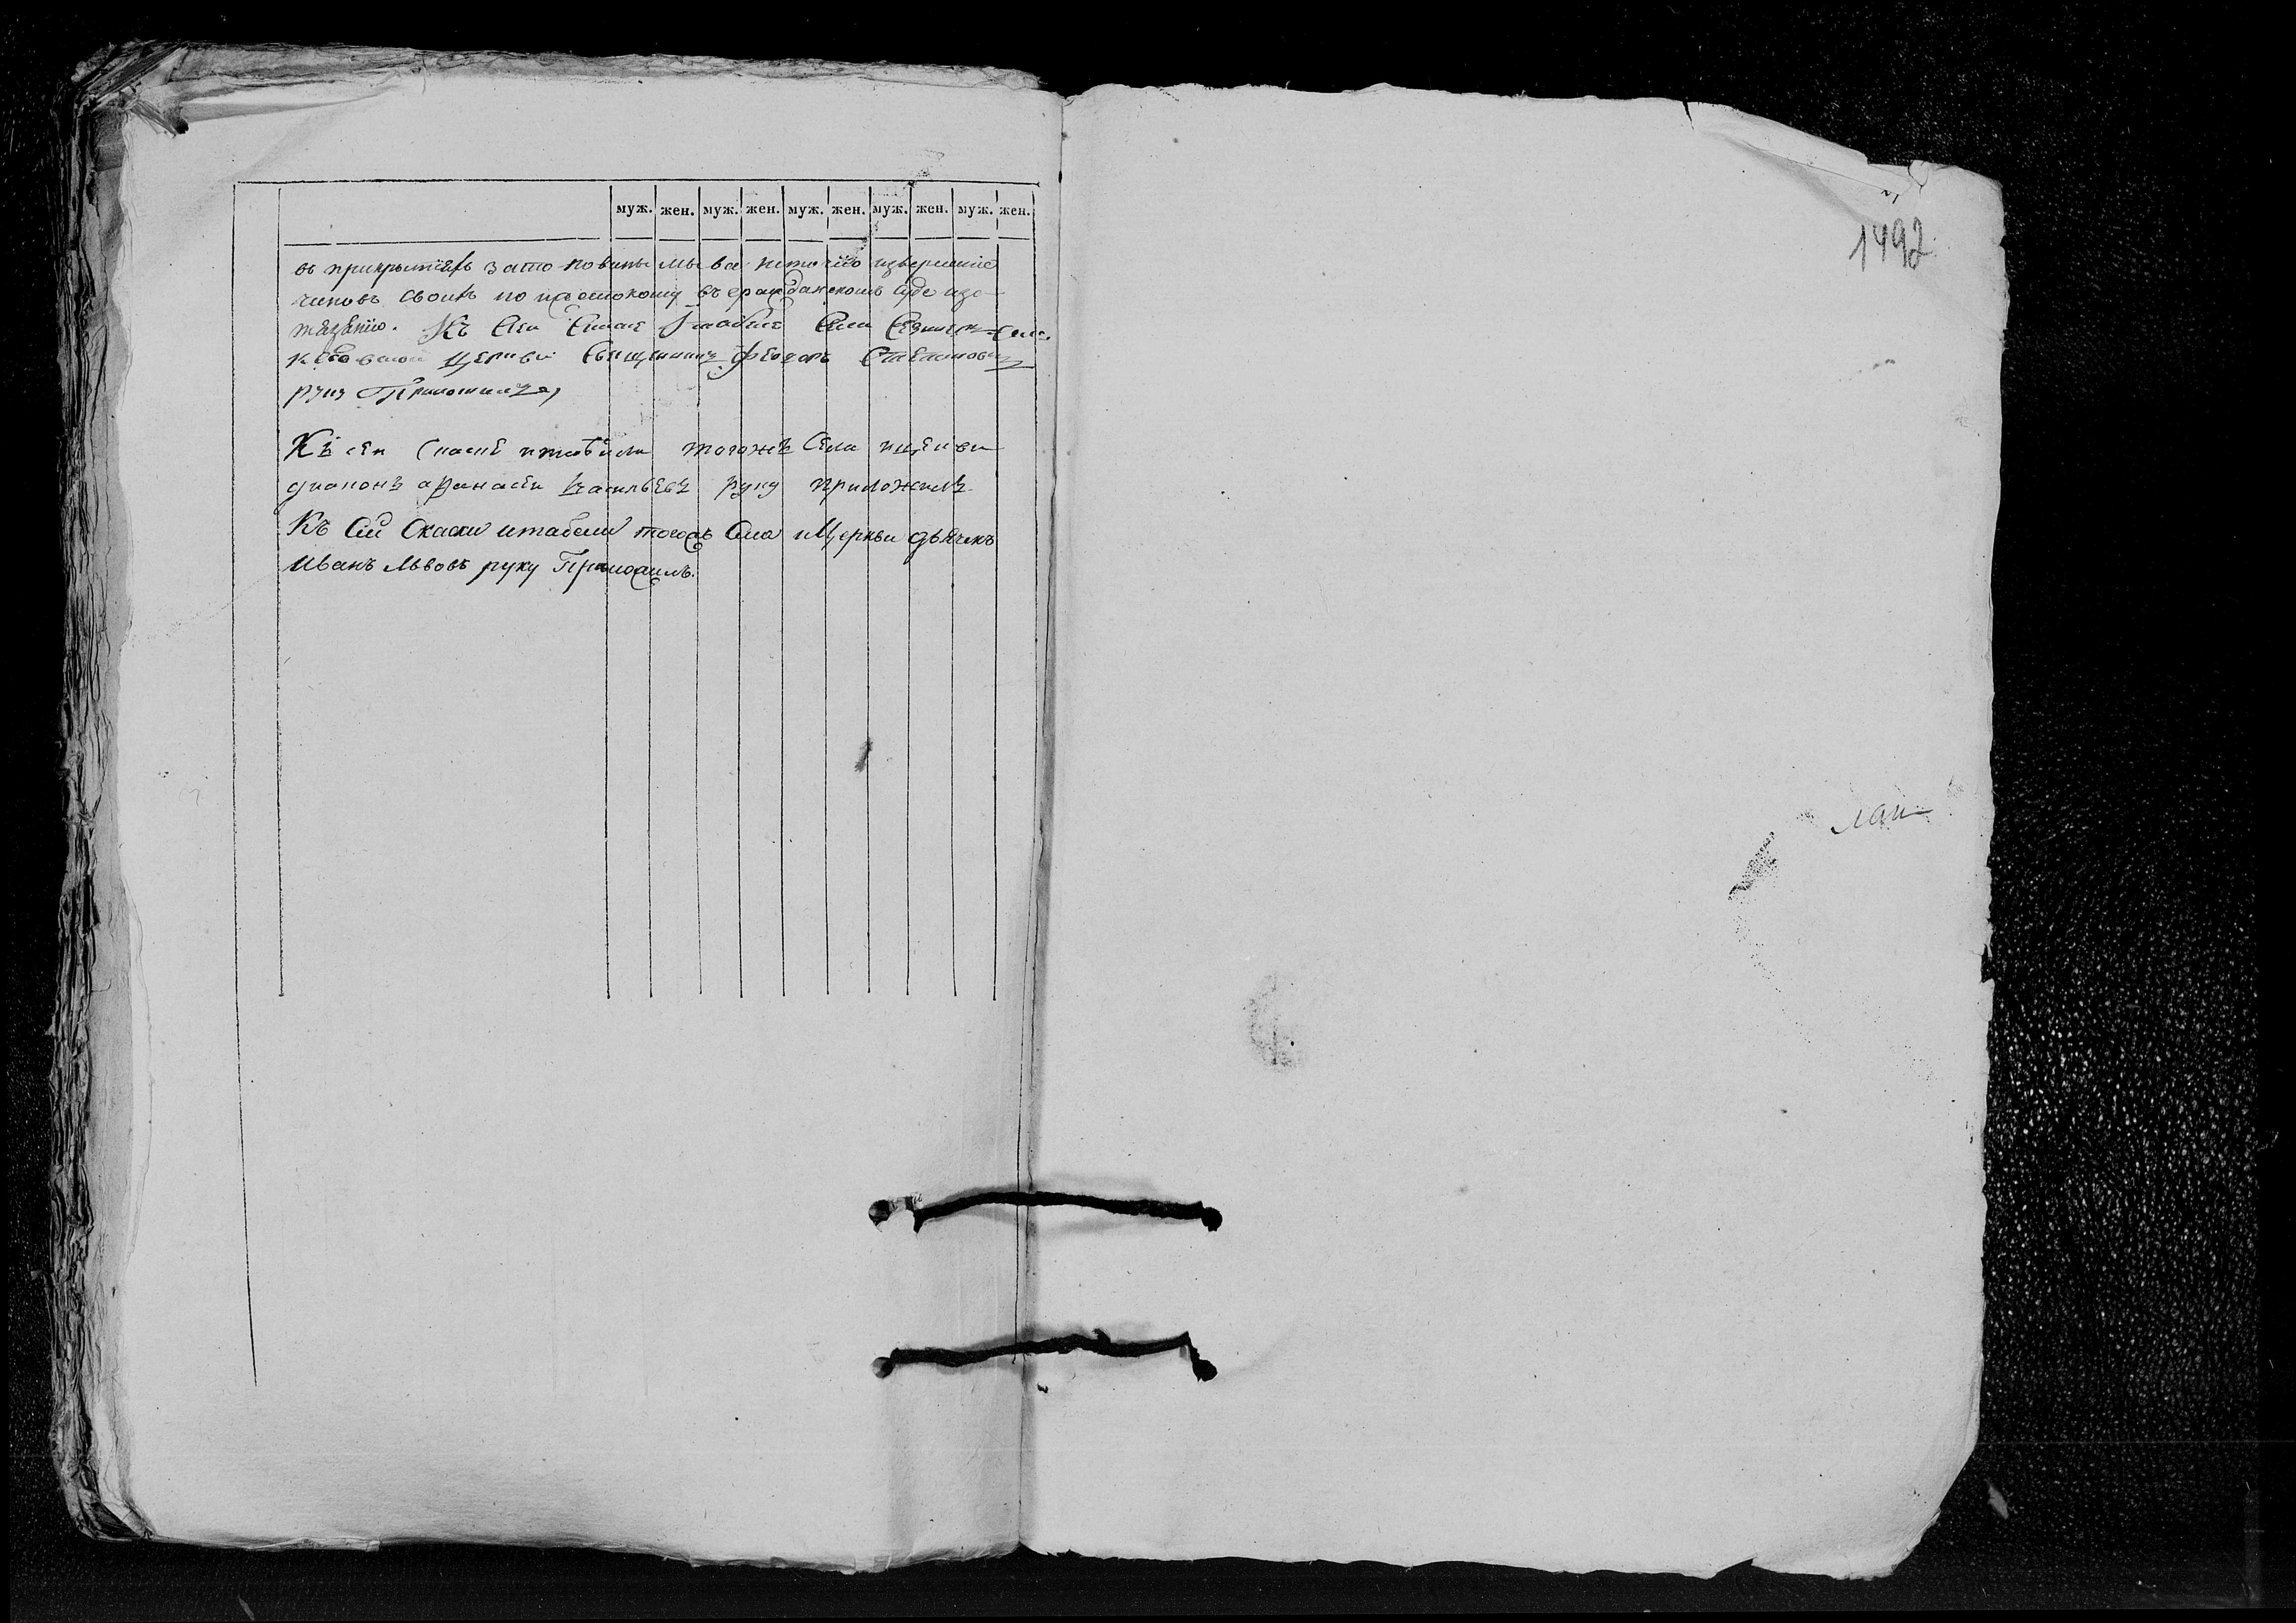 муж. жен. муж. жен. муж. жен. муж. жен. муж. жен.
въ прикрытіяхъ зато повины мы ва неточію изверженіе
чиновъ своихъ но и жестокому въ гражданскомъ суде изо
тязанію. Къ сеи Села
церкви священникъ Феодоръ Стефановъ
руку Приложилъ
Къ сеи скаске итабели тогожъ Села ицеркви
диаконъ афанасеи Васильевъ руку приложилъ
Къ Сей Скаски итабели тогожъ Села иЦеркви дьячекъ
Иванъ Львовъ руку Приложилъ.
1492